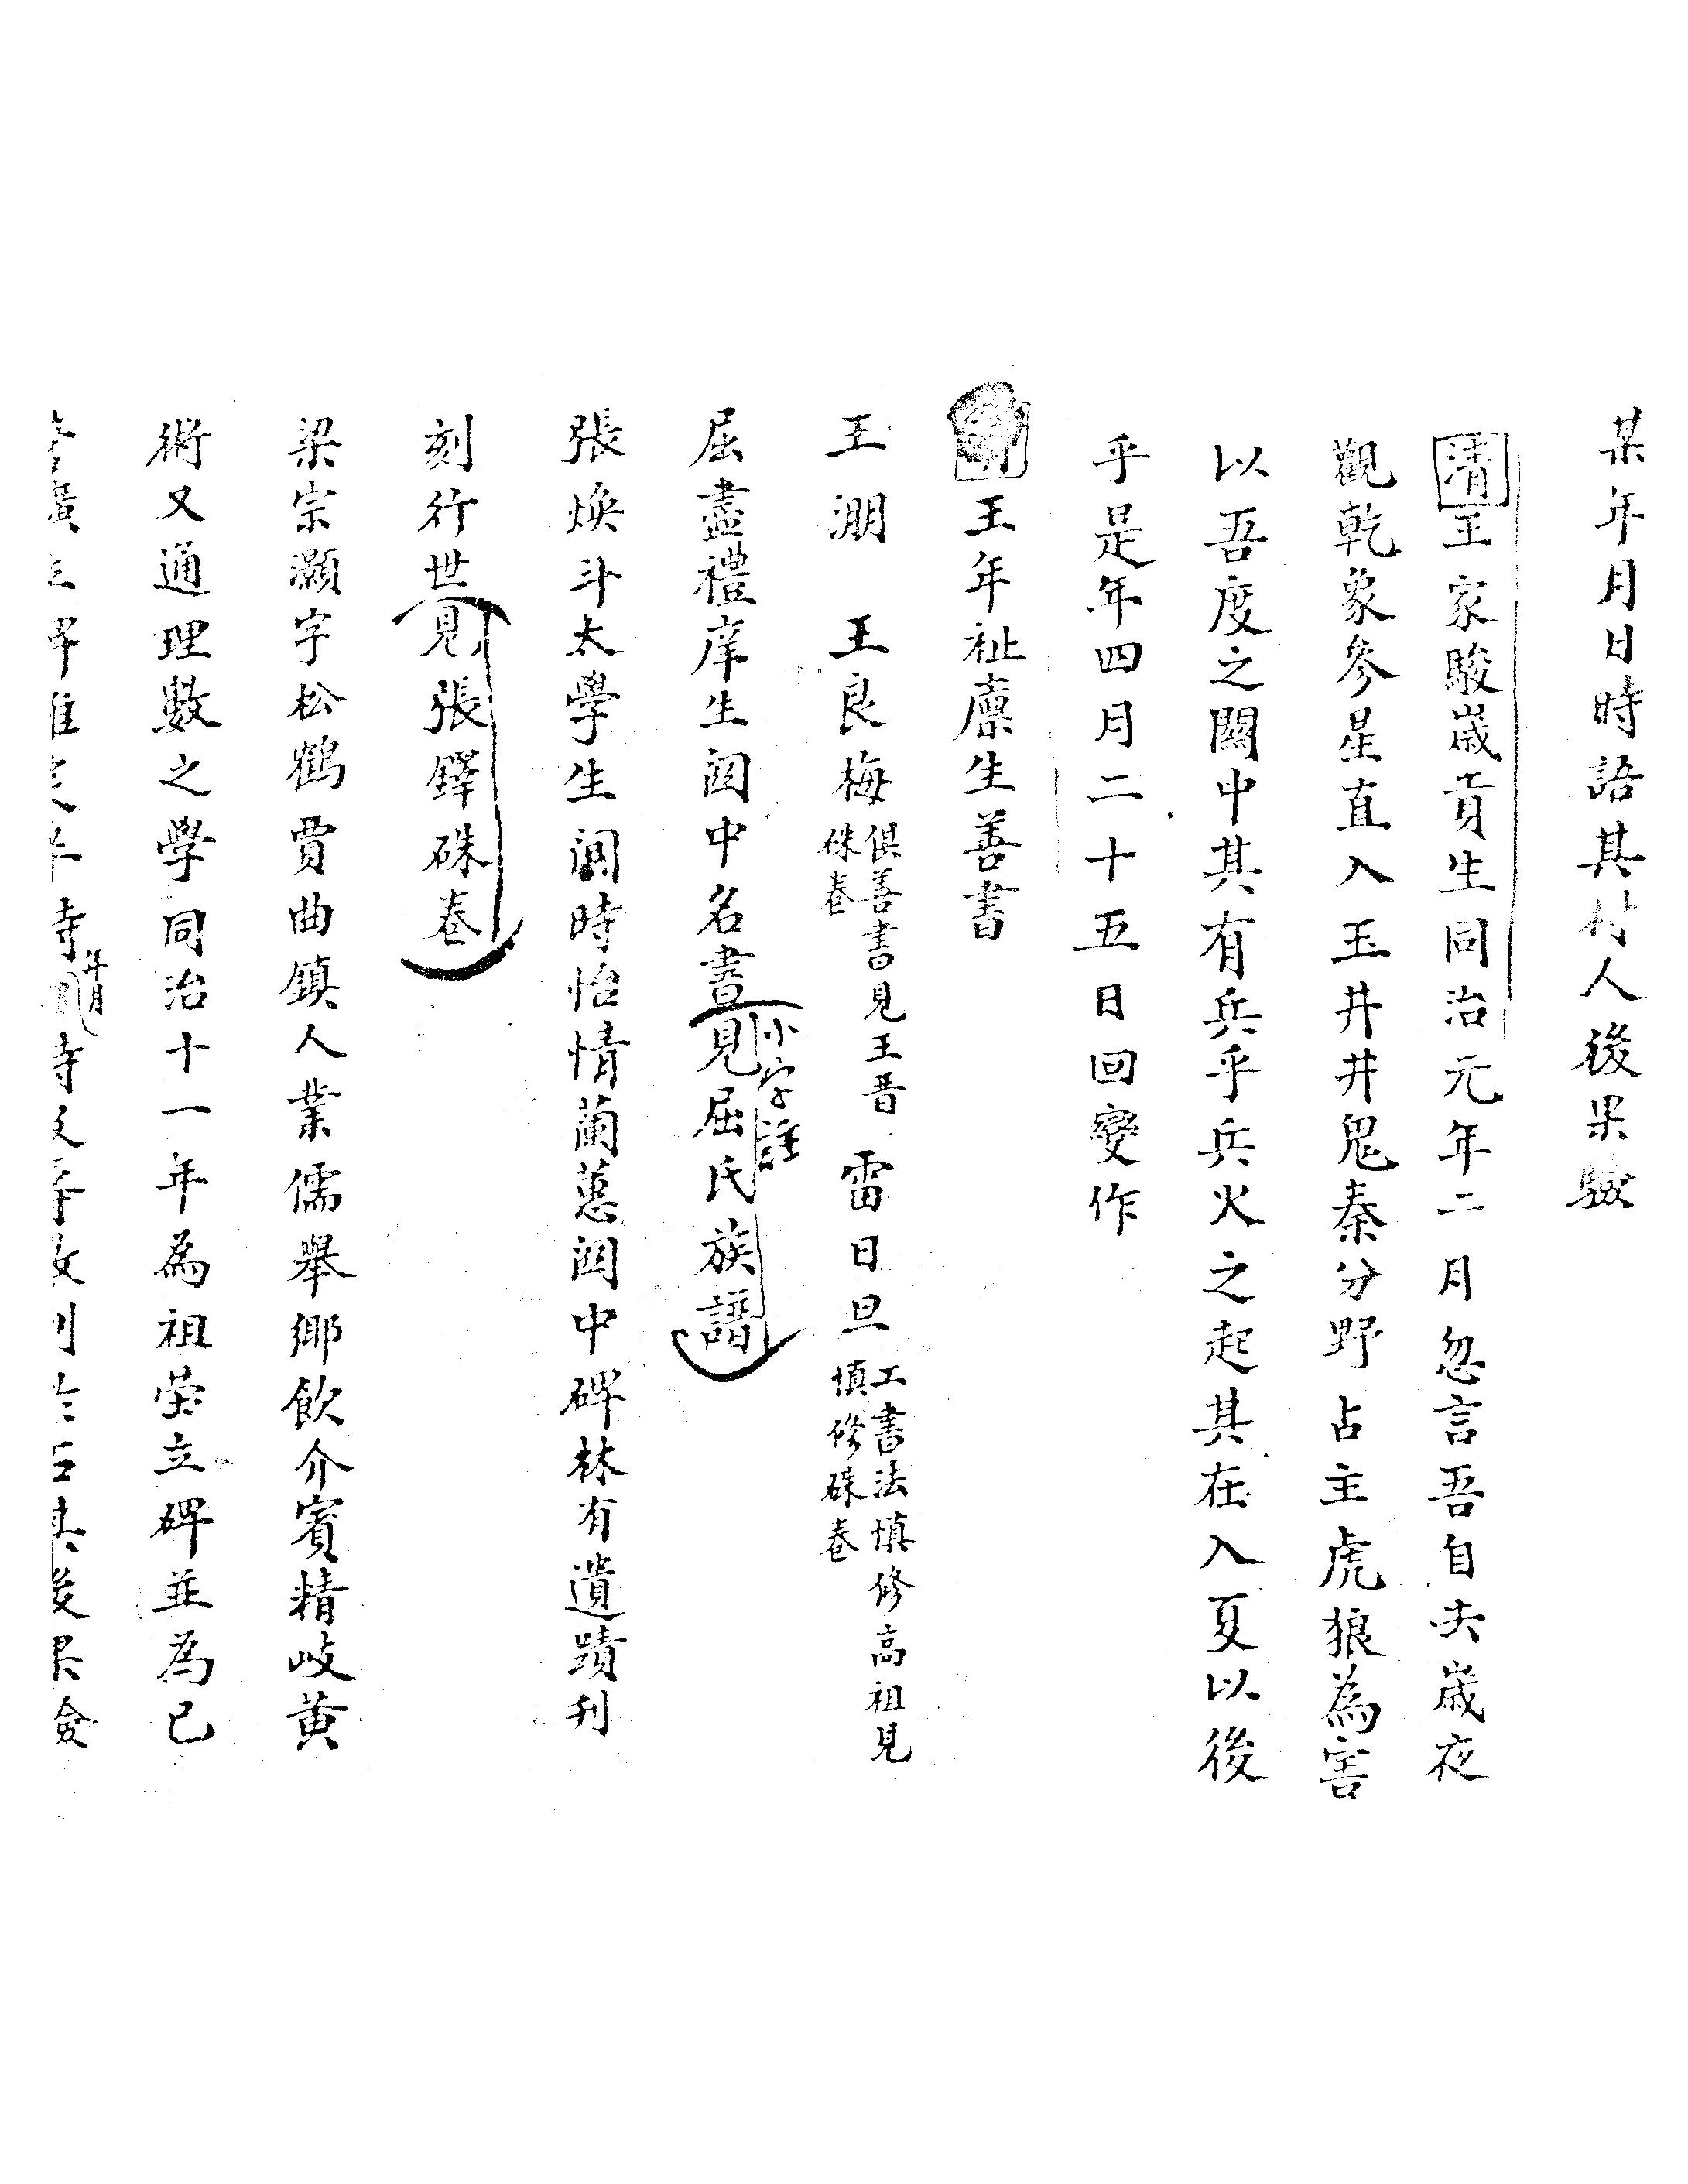 某年月日時語其村人後果驗
清王家駿歲貢生同治元年二月忽言吾自去歲夜
觀乾象參星直入玉井井鬼秦分野占主虎狼為害
以吾度之關中其有兵乎兵火之起其在入夏以後
乎是年四月二十五日回變作
王年祉廩生善書
王淜 王良梅 俱善書見王晋硃卷 雷日旦 工書法慎修高祖見慎修硃卷
屈盡禮庠生関中名書見屈氏族譜
小字註
張煥斗太學生調時怡情蘭蕙関中碑林有遺蹟刊
刻行世見張鐸硃卷
梁宗灝字松鶴賈曲鎮人業儒舉鄉飲介賓精岐黃
術又通理數之學同治十一年為祖塋立碑並為己
年月